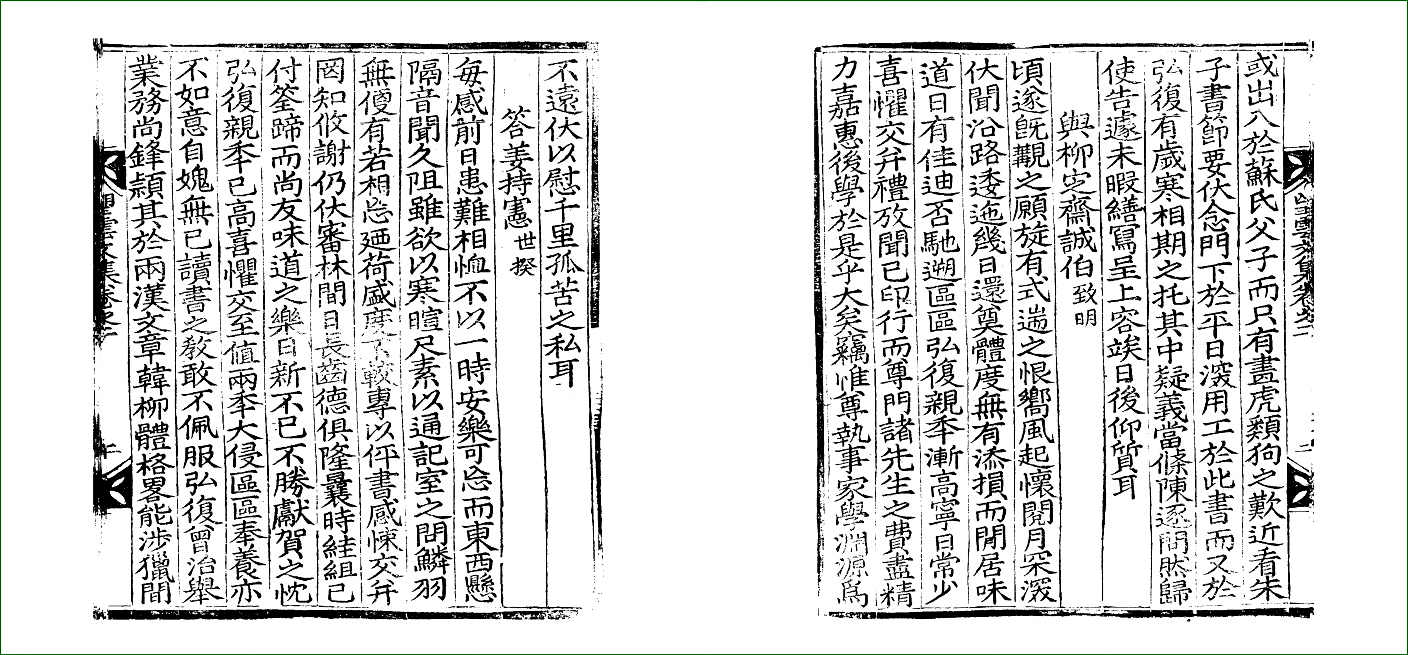 或出入於蘇氏父子而只有畵虎類狗之歎近看朱
子書節要伏念門下於平日深用工於此書而又於
弘復有歲寒相期之托其中疑義當條陳逐問然歸
使告遽未暇繕寫呈上容竢日後仰質耳
與柳定齋誠伯致明
頃遂旣覯之願旋有式遄之恨嚮風起懷閱月采深
伏聞沿路逶迤幾日還奠體度無有添損而閒居味
道日有佳迪否馳遡區區弘復親秊漸高寧日常少
喜懼交幷禮攷聞已印行而尊門諸先生之費盡精
力嘉惠後學於是乎大矣竊惟尊執事家學淵源爲
不遠伏以慰千里孤苦之私耳
答姜持憲世揆
每感前日患難相恤不以一時安樂可忘而東西懸
隔音聞久阻雖欲以寒暄尺素以通記室之問鱗羽
無便有若相忘迺荷盛度不較專以伻書感悚交幷
罔知攸謝仍伏審林間日長齒德俱隆曩時絓組已
付筌蹄而尚友味道之樂日新不已不勝獻賀之忱
弘復親秊已高喜懼交至値兩秊大侵區區奉養亦
不如意自媿無已讀書之敎敢不佩服弘復曾治舉
業務尚鋒穎其於兩漢文章韓柳體格畧能涉獵間